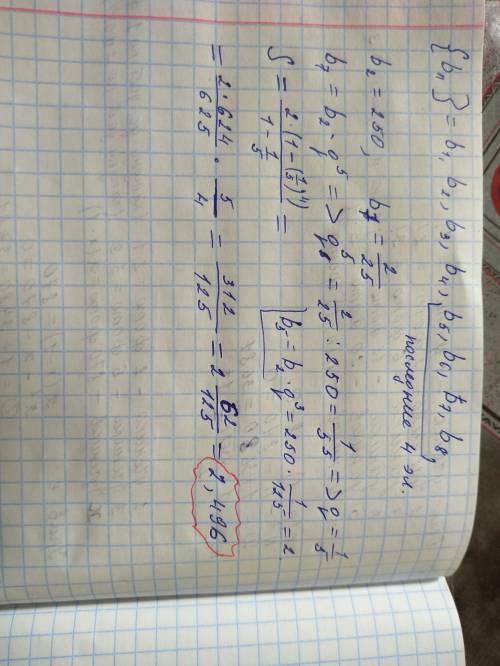 {bₙ} = b₁, b₂, b₃, b₄, b₅, b₆, b₇, b₈,
последние 4 эл.
b₂ = 250, b₇ = 2/25
b₇ = b₂ · q⁵ => q⁵ = 2/25 : 250 = 1/5⁵ => q = 1/5
b₅ = b₂ · q³ = 250 · 1/125 = 2.
S = 2·(1 - (1/5)⁴) / 1 - 1/5 =
= 2·624/625 · 5/4 = 312/125 = 2 62/125 = 2,496